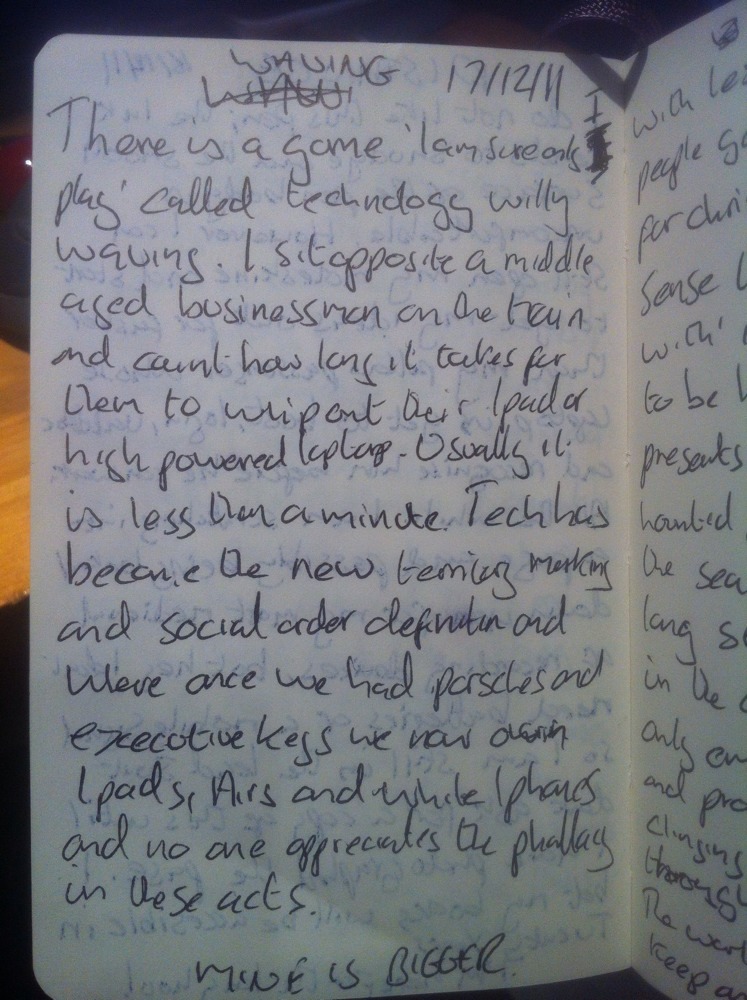 WAVING 17/12/11
There is a game 'I am sure only I
play' called technology willy
waving. I sit opposite a middle
aged businessman on the train
and count how long it takes for
them to whip out their Ipad or
high powered laptop. Usually it
is less then a minute. Tech has
become the new marking
and social order definition and
were once we had porsches and
executive keys we now own
Ipads, Airs and white Iphones
and no one appreciates the phallacy
in these acts.
MINE IS BIGGER.
with
people
for
sense
with'
to be
presents
haunted
the
long
in the
only
and
clinging
through
The
keep